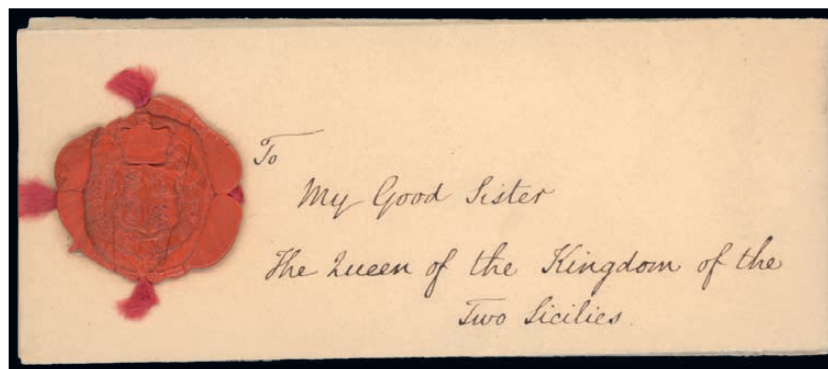 To
My Good Sister
The Queen of the Kingdom of the
Two Sicilies.